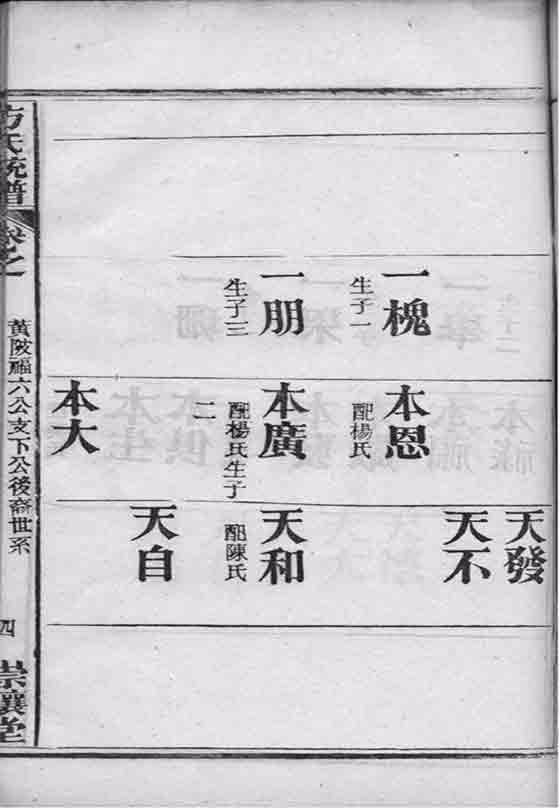 一槐
生子一
一朋
生子三
本恩
配楊氏
本廣
配楊氏生子
二
本大
天發
天不
天和
配陳氏
天自
方氏統譜
卷之
黃陂福六公支下公後裔世系
四
崇讓堂